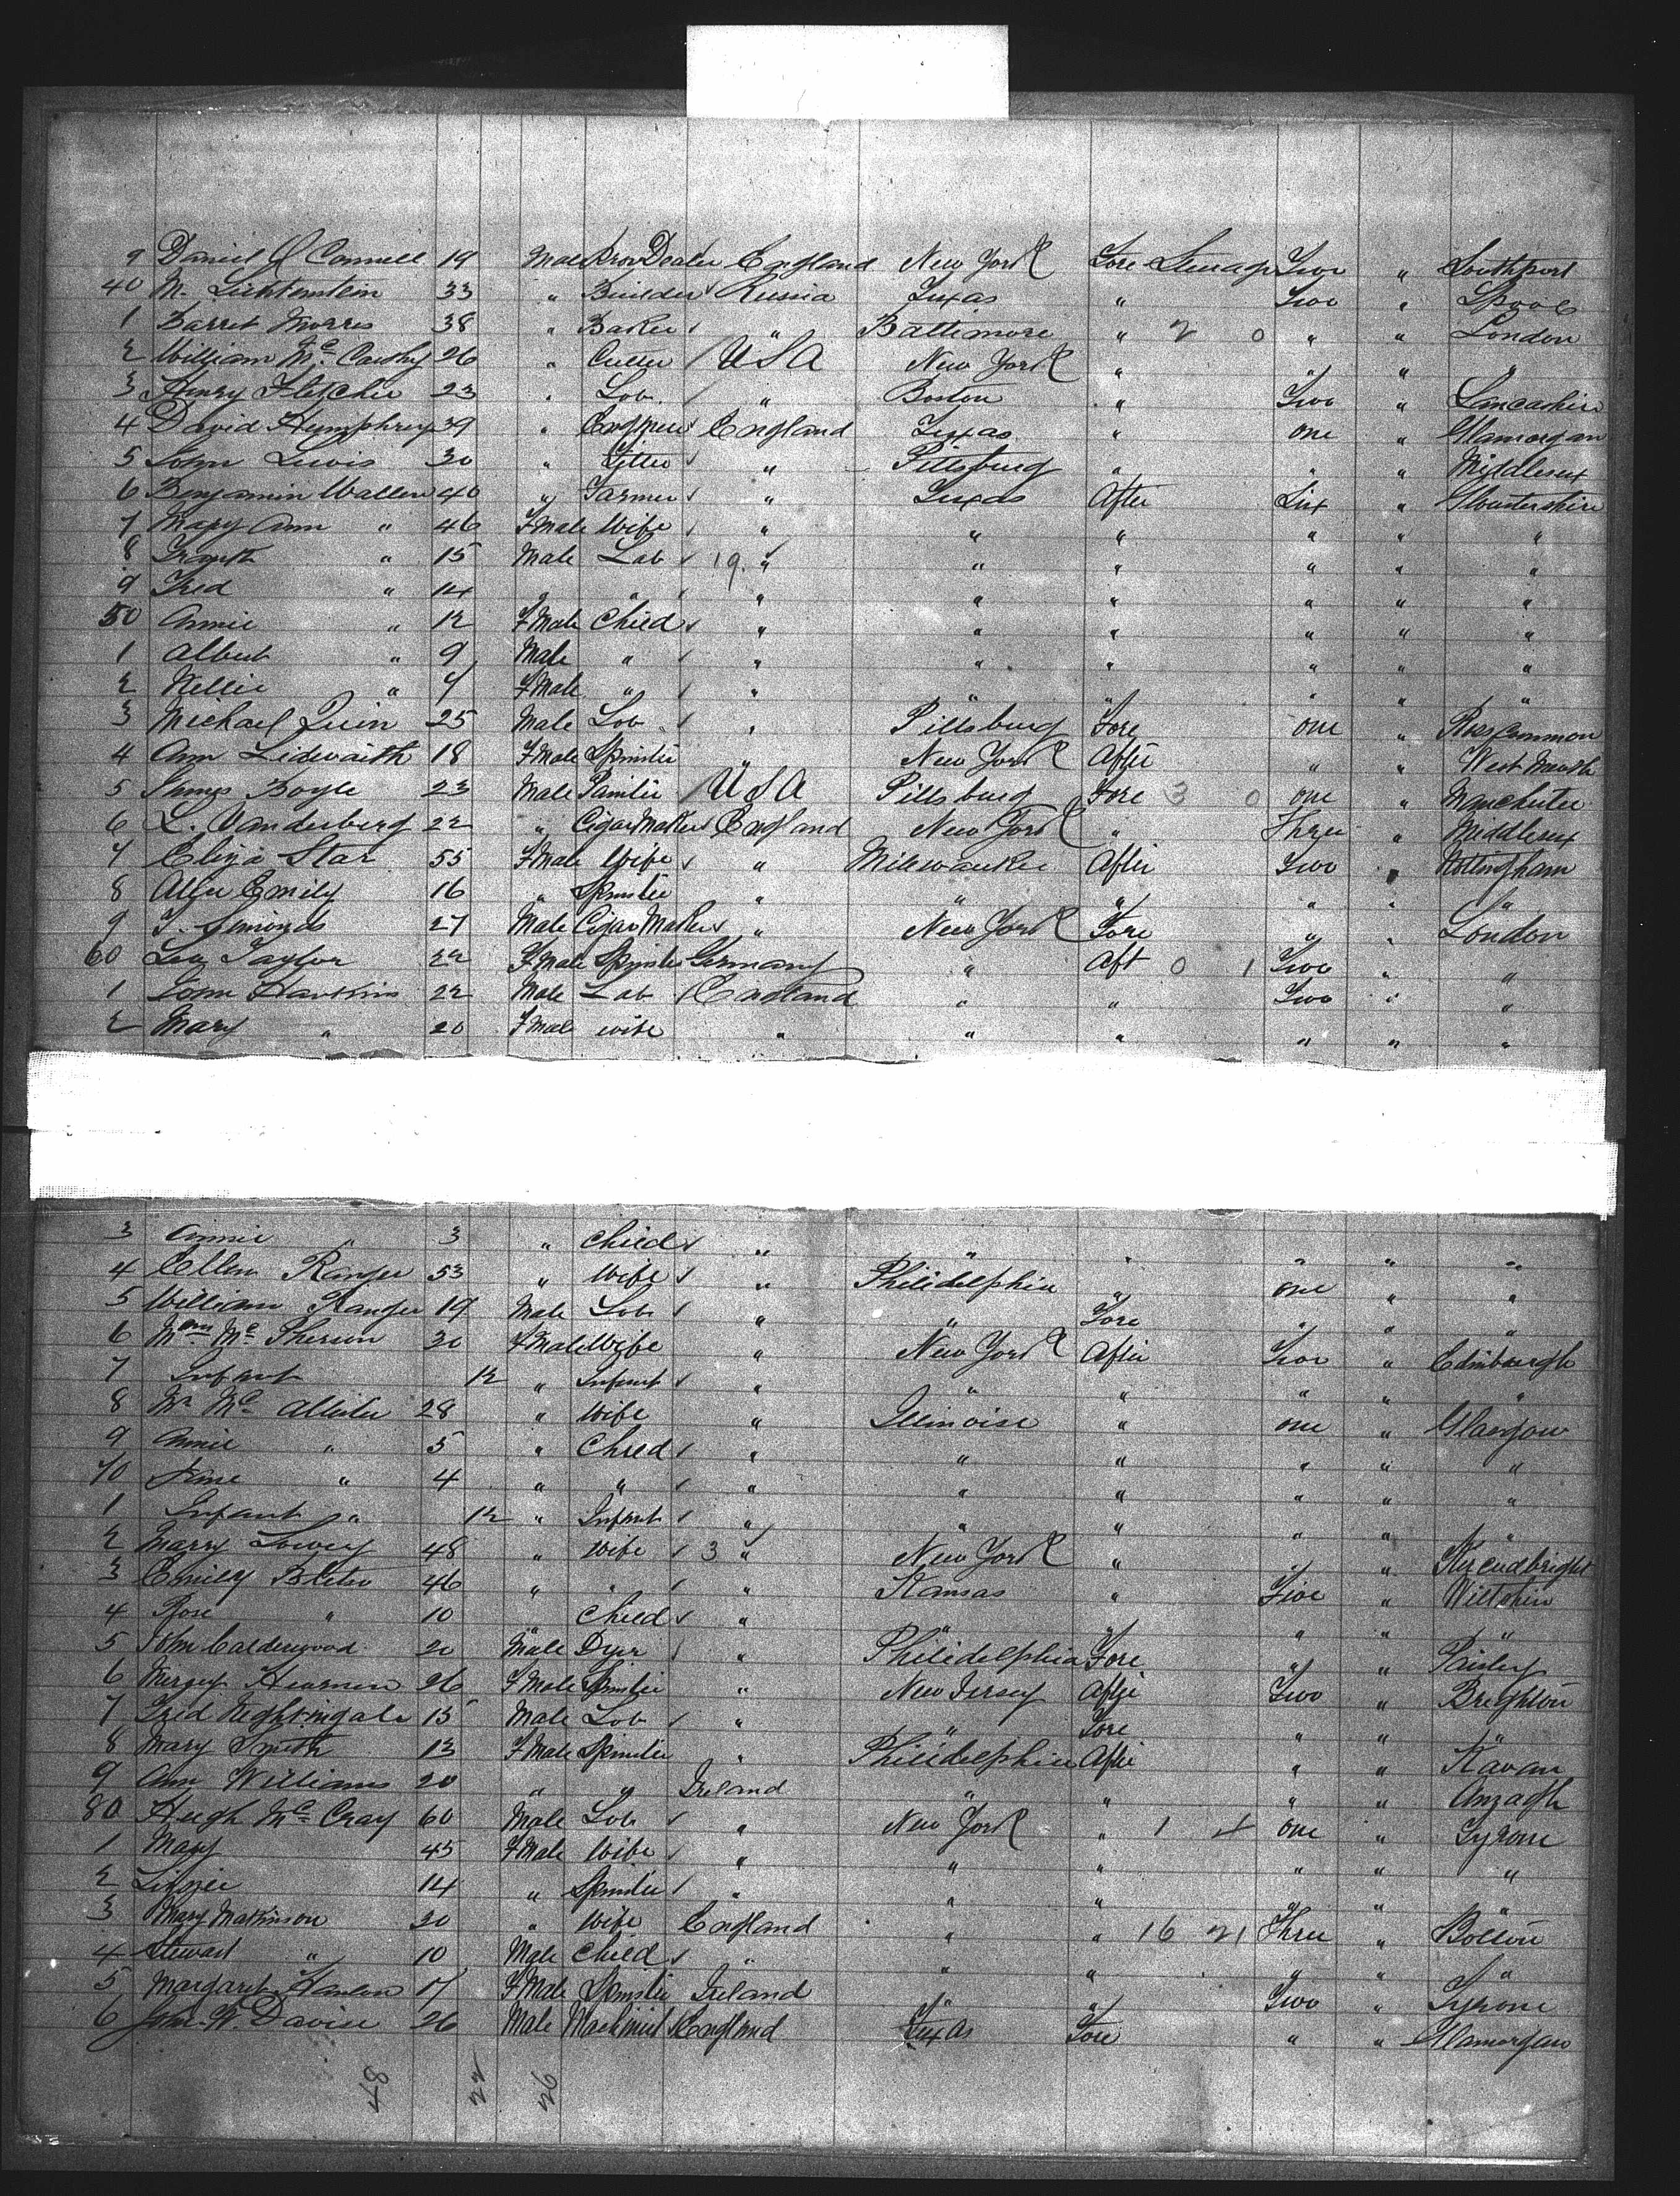 9 Daniel O Connell 19 Male Prov Dealer England New York Fore Steerage Two " Southport
40 M. Lichtenstein 33 " Builder Russia Texas " Two " Lpool
1 Barret Morris 38 " Baker " Baltimore " 2 0 " " London
2 William Mc Carthy 26 " Cutler USA New York " " " "
3 Henry Fletcher 23 " Lab " Boston " Two " Lancashire
4 David Humphrey 39 " Engineer England Texas " one " Glamorgan
5 John Lewis 30 " Fitter " Pittsburg " " " Middlesex
6 Benjamin Wallen 40 " Farmer " Texas After Six " Gloustershire
7 Mary Ann " 46 FMale Wife " " " " " "
8 Frank " 15 Male Lab 19. " " " " " "
9 Fred " 14 " " " " " " " "
50 Annie " 12 FMale Child " " " " " "
1 Albert " 9 Male " " " " " " "
2 Nellie " 7 FMale " " " " " " "
3 Michael Quin 25 Male Lab " Pittsburg Fore one " Roscommon
4 Ann 18 FMale Spinster " New York After " " West Meath
5 James Boyle 23 Male Painter USA Pittsburg Fore 3 0 one " Manchester
6 L. Vanderberg 22 " Cigar Maker England New York " Three " Middlesex
7 Eliza Star 55 FMale Wife " Milwaukee After Two " Nottingham
8 Emily 16 " Spinster " " " " " "
9 Simonds 27 Male Cigar Maker " New York Fore " " London
60 Taylor 22 FMale Spinster Germany " Aft 0 1 Two " "
1 John Hawkins 22 Male Lab England " " Two " "
2 Mary " 20 FMale wife " " " " " "
3 Annie " 3 " Child " " " " " "
4 Ellen Ranger 53 " Wife " Philidelphia " one " "
5 William Ranger 19 Male Lab " " Fore " " "
6 Mc Pherson 30 FMale Wife " New York After Two " Edinburgh
7 Infant 12 " Infant " " " " " "
8 Mc 28 " Wife " Illinoise " one " Glasgow
9 Annie " 5 " Child " " " " " "
70 Jane " 4 " " " " " " " "
1 Infant " 12 " Infant " " " " " "
2 Mary Lowey 48 " Wife 3 " New York " " " Kircudbright
3 Emily 46 " " " Kansas " Five " Wiltshire
4 Rose " 10 " Child " " " " " "
5 John Calderwood 20 Male Dyer " Philidelphia Fore " " Paisley
6 26 FMale Spinster " New Jersey After Two " Brighton
7 Fred Nightingale 15 Male Lab " " Fore " " "
8 Mary Smith 13 FMale Spinster " Philidelphia After " " Kavan
9 Ann Williams 20 " " Ireland " " " "
80 Hugh Mc Cray 60 Male Lab " New York " 1 4 one " Tyrone
1 Mary 45 FMale Wife " " " " " "
2 Lizzie 14 " Spinster " " " " " "
3 Mary Makinson 30 " Wife England " " 16 21 Three " Bolton
4 Stewart " 10 Male Child " " " " " "
5 Margaret Hanlen 17 FMale Spinster Ireland " " Two " Tyrone
6 John W. Davies 26 Male Machinist England Texas Fore " " Glamorgan
48 22 26